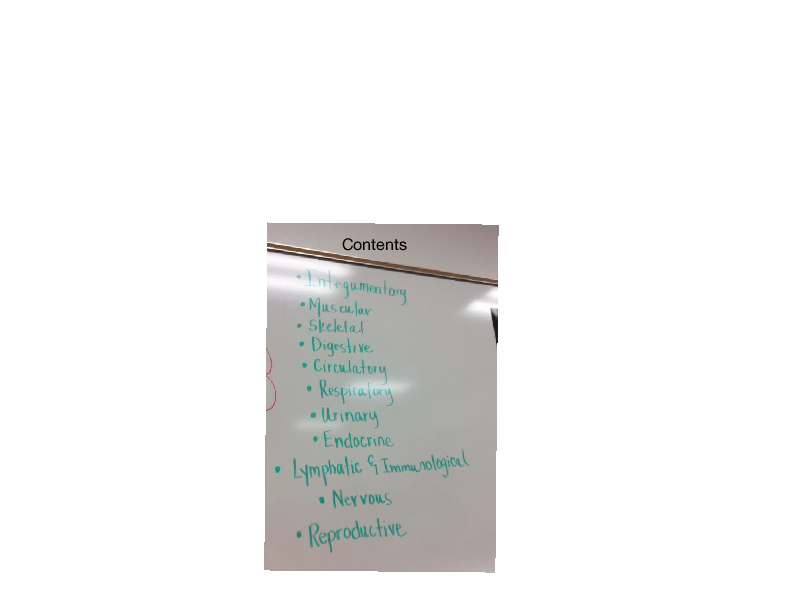 Contents
• Integumentary
• Muscular
• Skeletal
• Digestive
• Circulatory
• Respiratory
• Urinary
• Endocrine
• Lymphatic & Immunological
• Nervous
• Reproductive